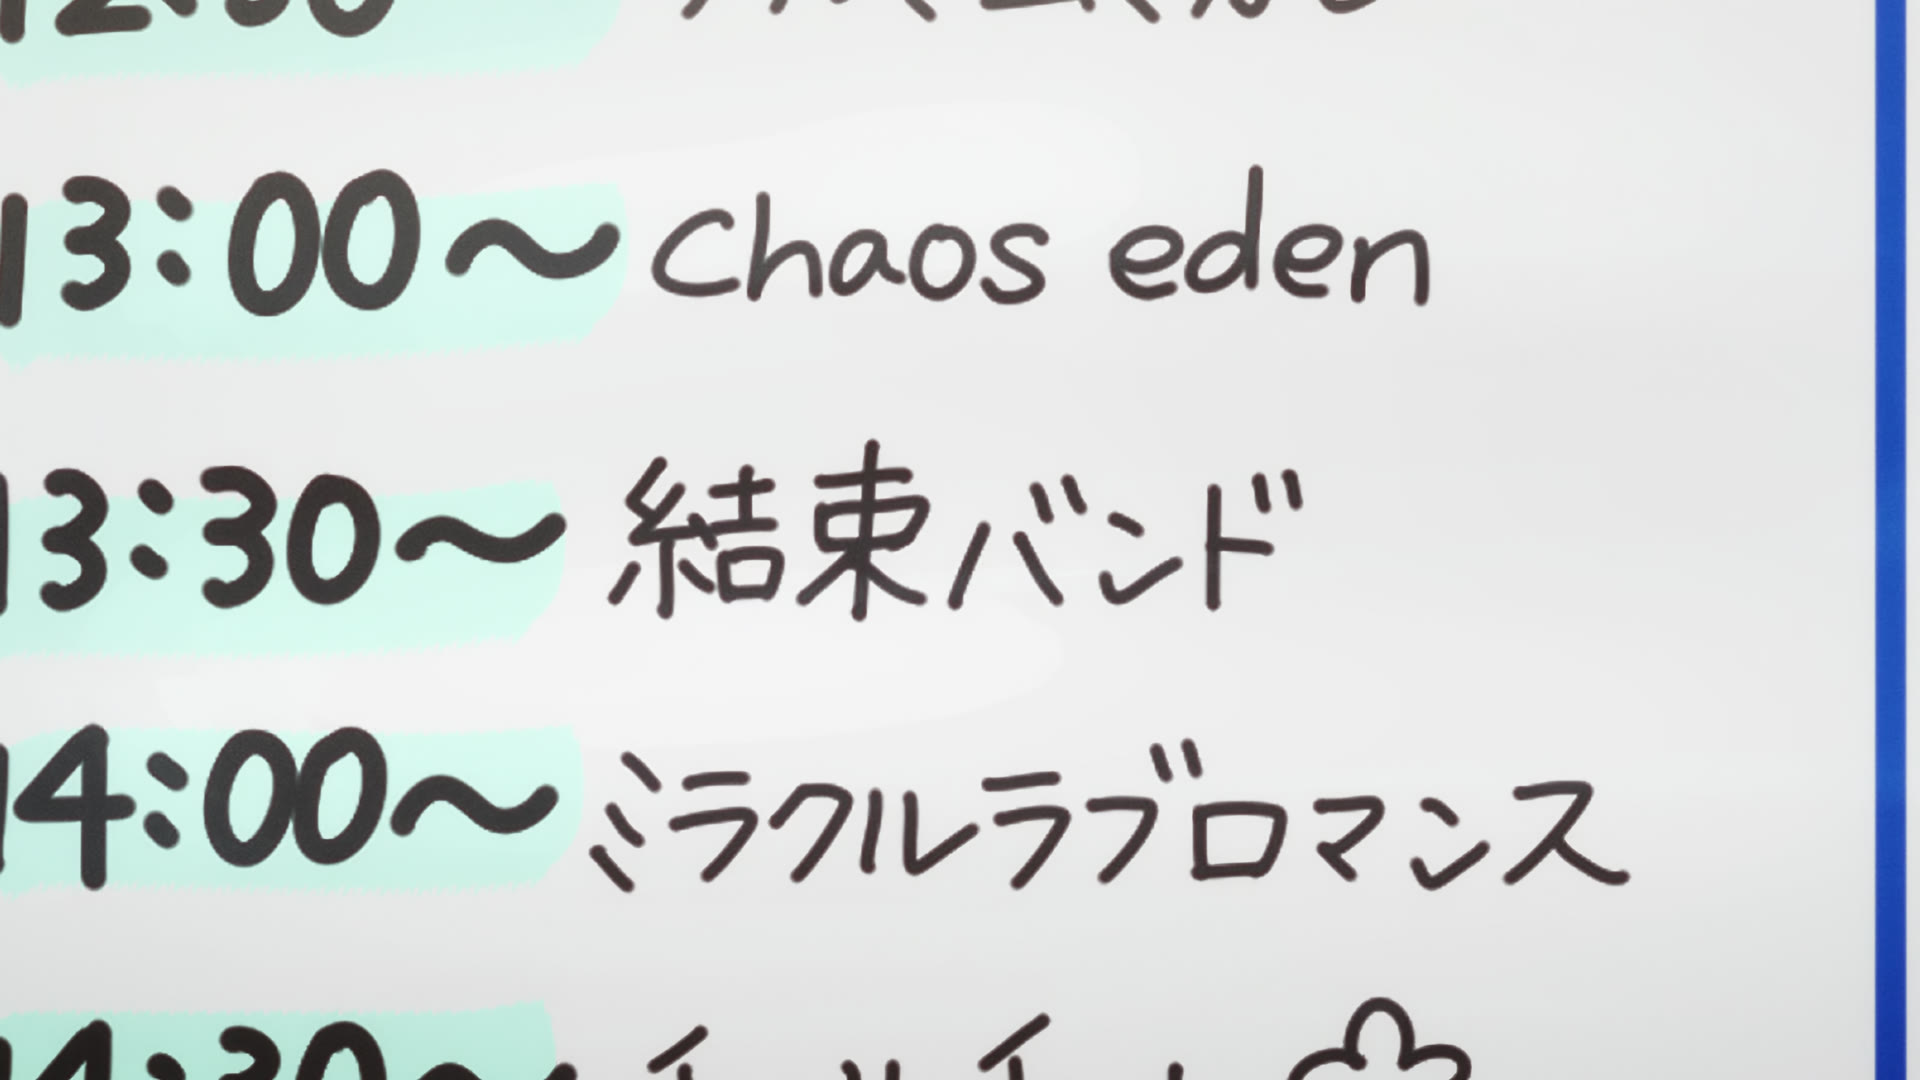 13:00～ Chaos eden
13:30～ 結束バンド
14:00～ ミラクルラブロマンス